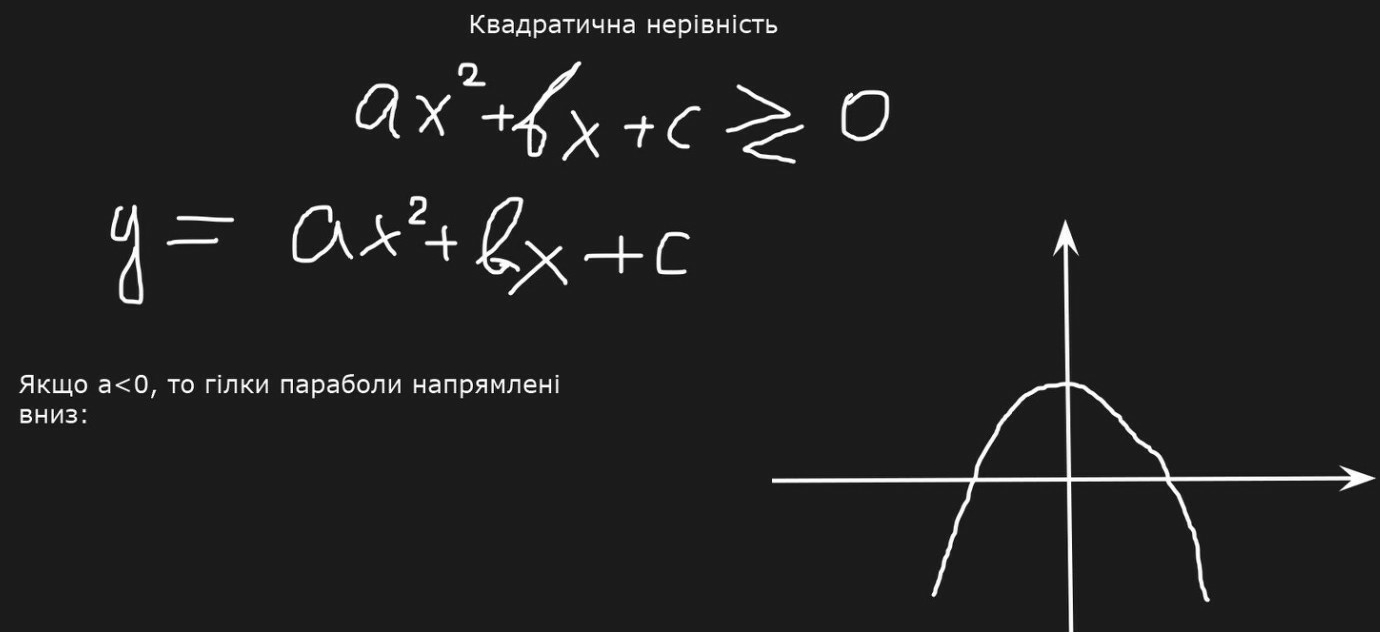 Квадратична нерівність
ax²+bx+c ≷ 0
y = ax²+bx+c
Якщо а<0, то гілки параболи напрямлені
вниз: